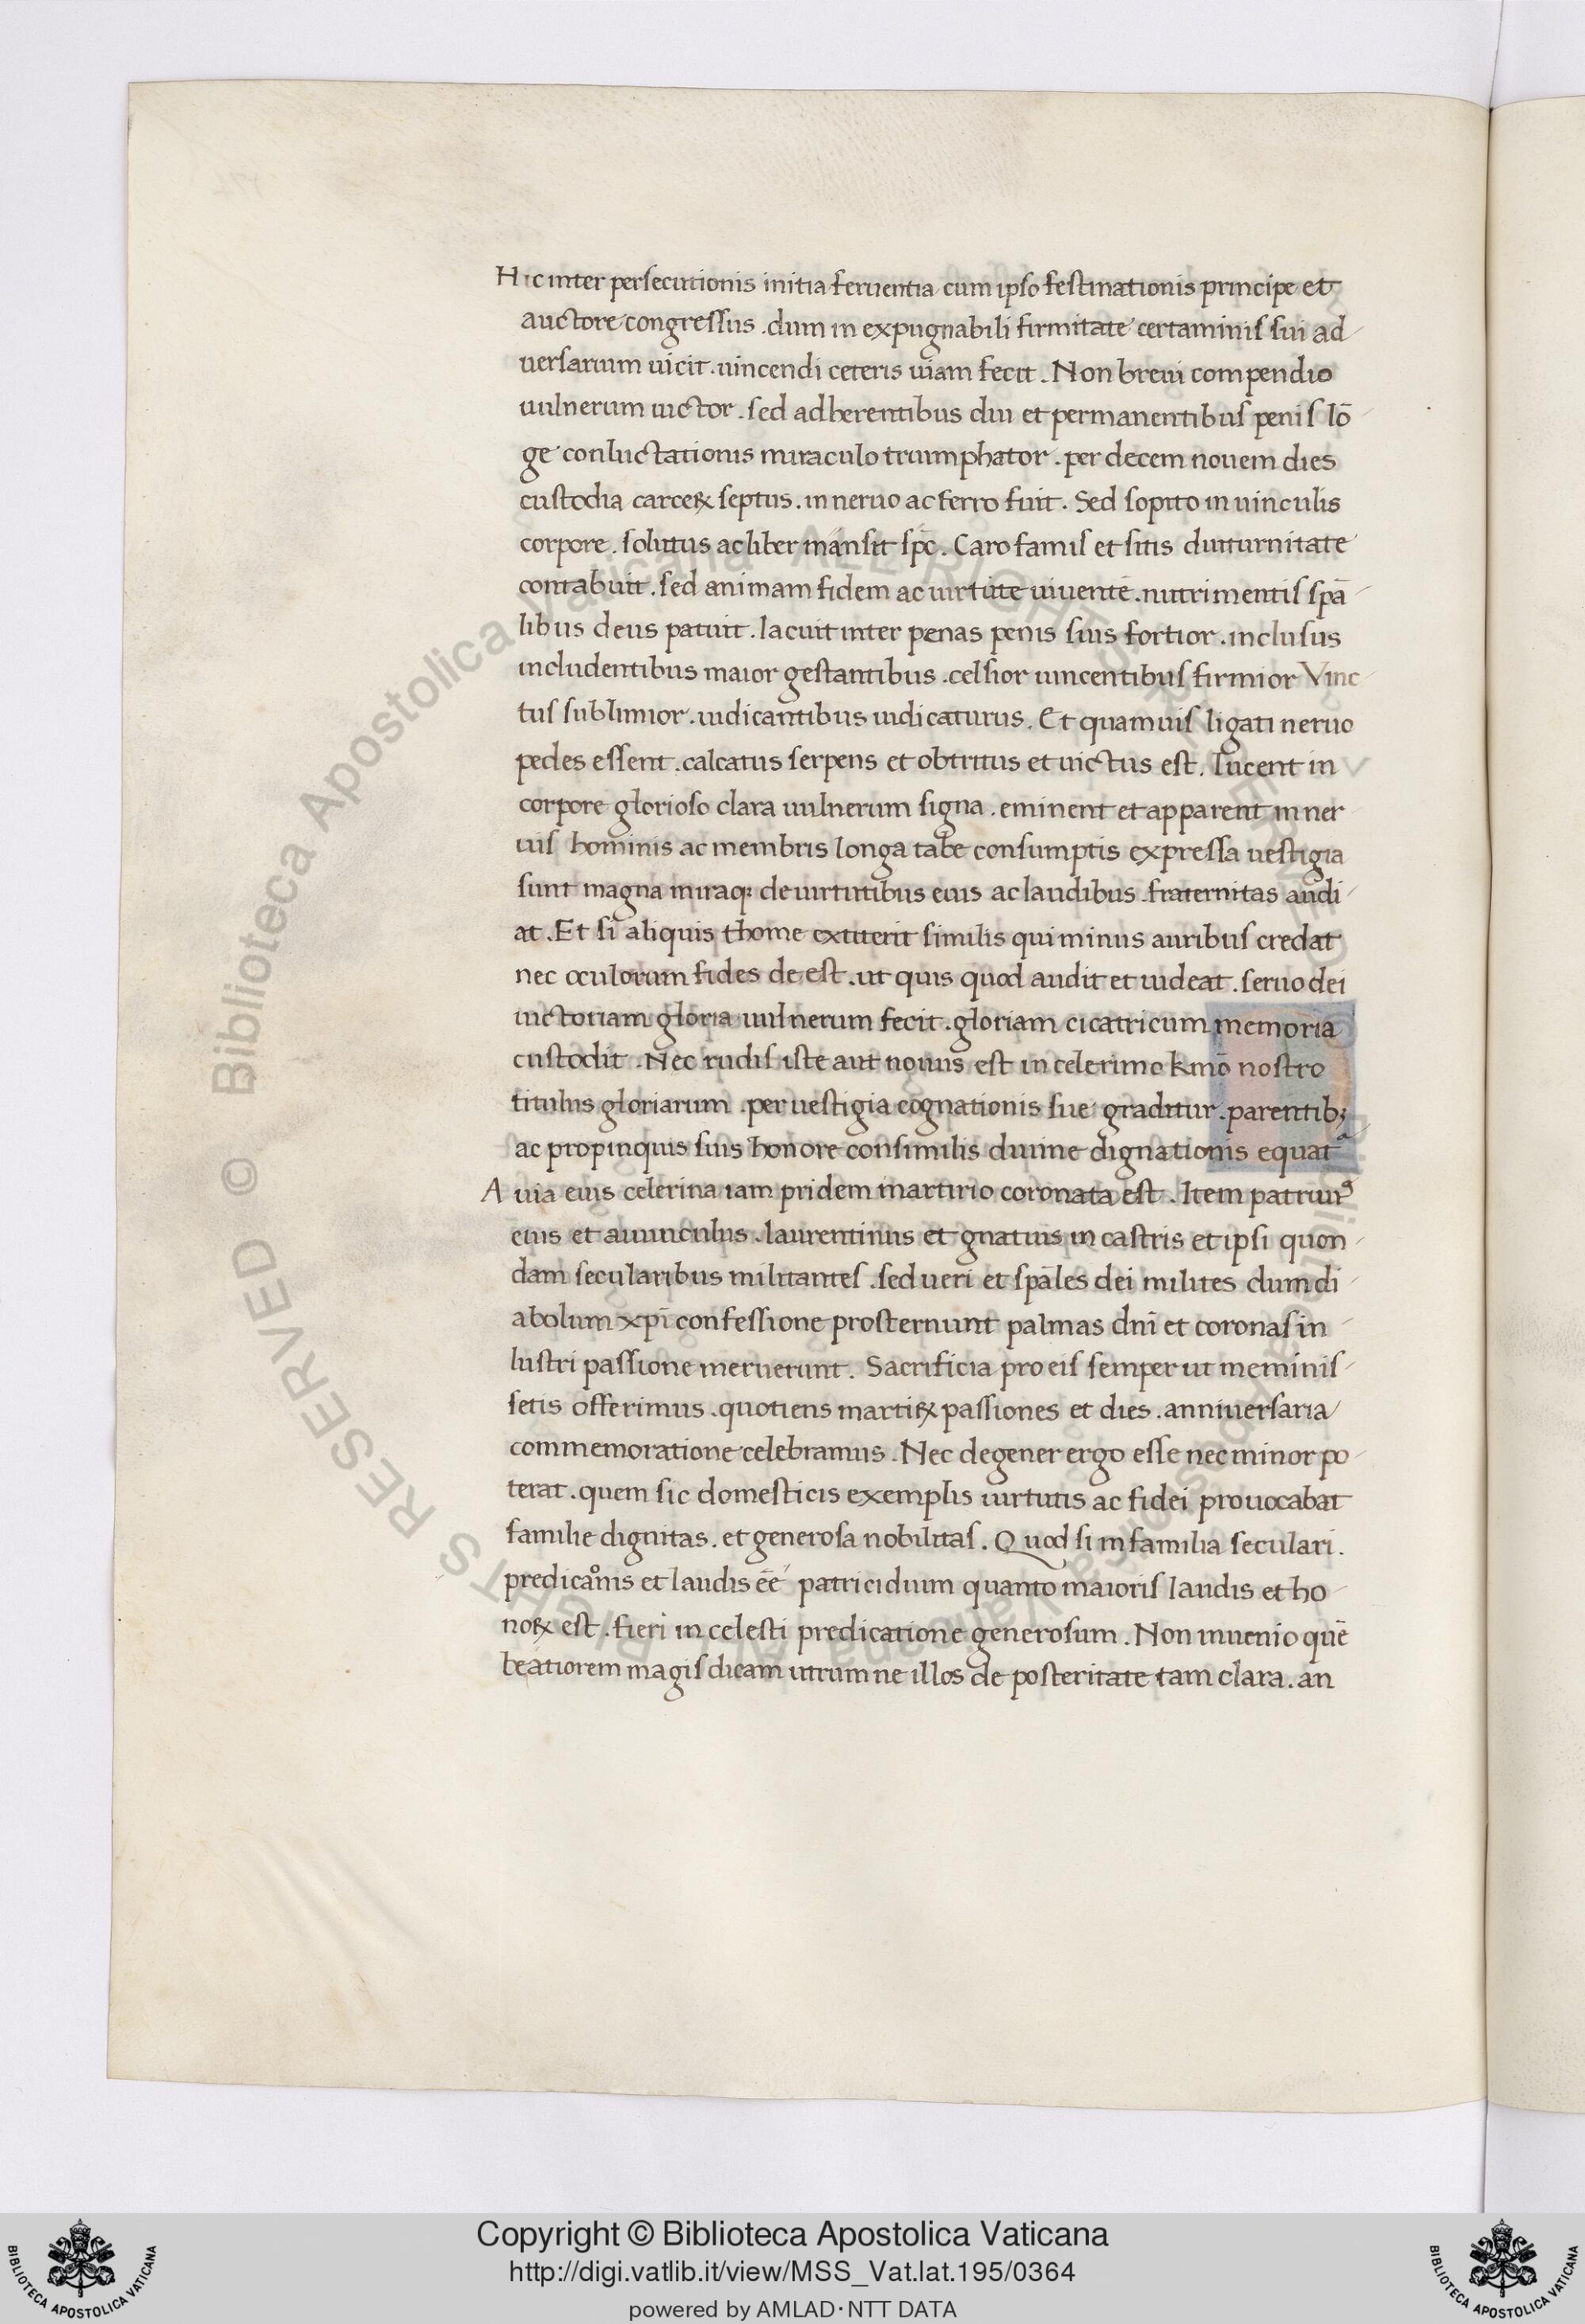 Hic inter persecutionis initia feruentia cum ipso festinationis principe et
auctore congressus . dum in expugnabili firmitate certaminis sui ad
uersarium uicit . uincendi ceteris uiam fecit . Non breui compendio
uulnerum uictor . sed adherentibus diu et permanentibus penis lō
ge conluctationis miraculo triumphator . per decem nouem dies
custodia carceꝝ septus . in neruo ac ferro fuit . Sed sopito in uinculis
corpore . solutus ac liber mansit sp̄c . Caro famis et sitis diuturnitate
contabuit . sed animam fidem ac uirtute uiuentē . nutrimentis spā
libus deus patuit . Iacuit inter penas penis suis fortior . inclusus
includentibus maior gestantibus . celsior uincentibus firmior Vinc
tus sublimior . iudicantibus iudicaturus . Et quamuis ligati neruo
pedes essent . calcatus serpens et obtritus et uictus est . lucent in
corpore glorioso clara uulnerum signa . eminent et apparent in ner
uis hominis ac membris longa tabe consumptis expressa uestigia
sunt magna miraqꝫ de uirtutibus eius ac laudibus . fraternitas audi
at . Et si aliquis thome extiterit similis qui minus auribus credat
nec oculorum fides de est . ut quis quod audit et uideat . seruo dei
uictoriam gloria uulnerum fecit . gloriam cicatricum memoria
custodit . Nec rudis iste aut nouus est in celerimo kmō nostro
titulus gloriarum . per uestigia cognationis sue graditur . parentibꝫ
ac propinquis suis honore consimilis diuine dignationis equatᷓ
Auia eius celerina iam pridem martirio coronata est . Item patruuꝰ
eius et auunculus . laurentinus et gnatuis in castris et ipsi quon
dam secularibus militantes . sed ueri et spāles dei milites dum di
abolum xp̄i confessione prosternunt palmas dn̄i et coronas in
lustri passione meruerunt . Sacrificia pro eis semper ut meminis
setis offerimus . quotiens martiꝝ passiones et dies . anniuersaria
commemoratione celebramus . Nec degener ergo esse nec minor po
terat . quem sic domesticis exemplis uirtutis ac fidei prouocabat
familie dignitas . et generosa nobilitas . Quod si in familia seculari .
predicaͦnis et laudis ēē patricidium quanto maioris laudis et ho
noꝝ est . fieri in celesti predicatione generosum . Non inuenio quē
beatiorem magis dicam utrum ne illos de posteritate tam clara . an
© Biblioteca Apostolica Vaticana ALL RIGHTS RESERVED
© Biblioteca Apostolica Vaticana ALL RIGHTS RESERVED
Copyright © Biblioteca Apostolica Vaticana
http://digi.vatlib.it/view/MSS_Vat.lat.195/0364
powered by AMLAD・NTT DATA
BIBLIOTECA APOSTOLICA VATICANA
BIBLIOTECA APOSTOLICA VATICANA